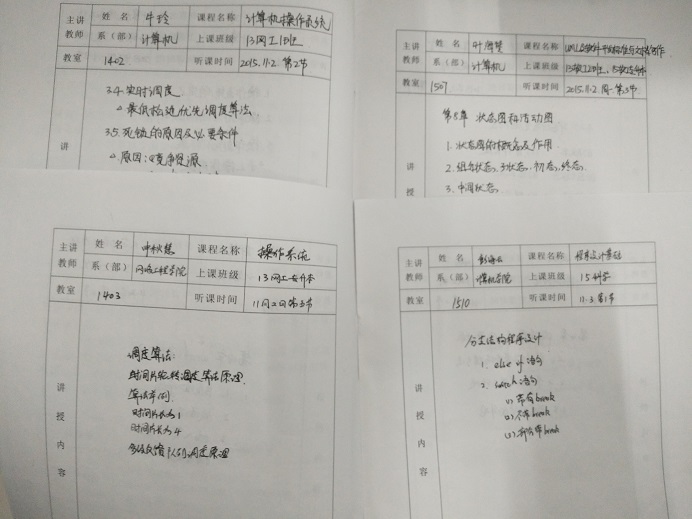 主讲教师 姓 名 牛玲 课程名称 计算机操作系统
系（部） 计算机 上课班级 13网工1班
教室 1402 听课时间 2015.11.2. 第2节
讲
3.4 实时调度
最低松弛优先调度算法.
3.5 死锁的原因及必要条件
原因: 竞争资源
主讲教师 姓 名 课程名称
系（部） 计算机 上课班级
教室 1507 听课时间 2015.11.2. 周一第3节
讲 授
第5章 状态图和活动图
1. 状态图的概念及作用
2. 组合状态, 子状态, 初态, 终态.
3. 中间状态.
主讲教师 姓 名 叶秋慧 课程名称 操作系统
系（部） 网络工程学院 上课班级 13网工专升本
教室 1403 听课时间 11月2日第3节
讲 授 内 容
调度算法:
时间片轮转调度算法原理.
算法举例.
时间片长为1
时间片长为4
多级反馈队列调度原理
主讲教师 姓 名 彭海云 课程名称 程序设计基础
系（部） 计算机学院 上课班级 15科学
教室 1510 听课时间 11.3.第1节
讲 授 内 容
分支结构程序设计
1. else if 语句
2. switch 语句
(1) 带有break
(2) 不带break
(3) 部分带break